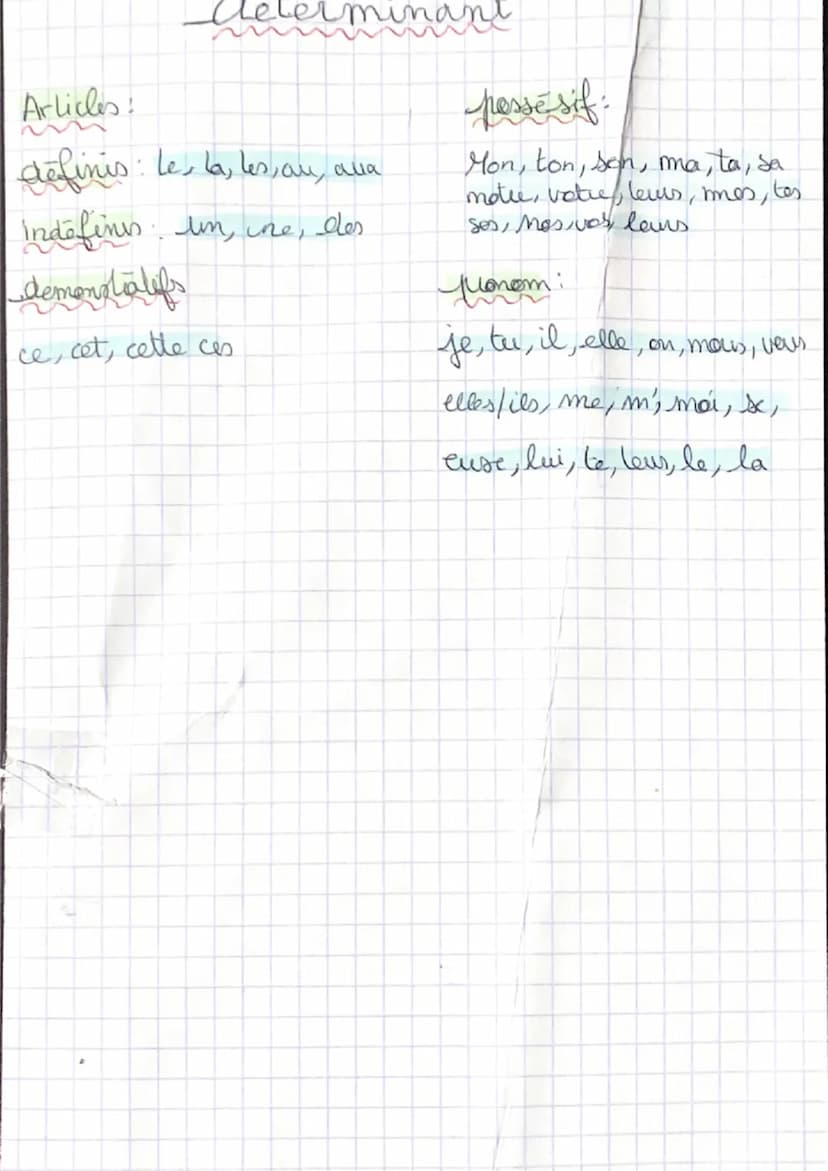 determinant
Articles:
définis: le, la, les, au, aux
indéfinis: un, une, des
demonstratifs
ce, cet, cette ces
possésif:
Mon, ton, son, ma, ta, sa
notre, votre, leurs, mes, tes
ses, nos, vos, leurs
pronom:
je, tu, il, elle, on, nous, vous
elles/ils, me, m', moi, se,
euxe, lui, te, leur, le, la